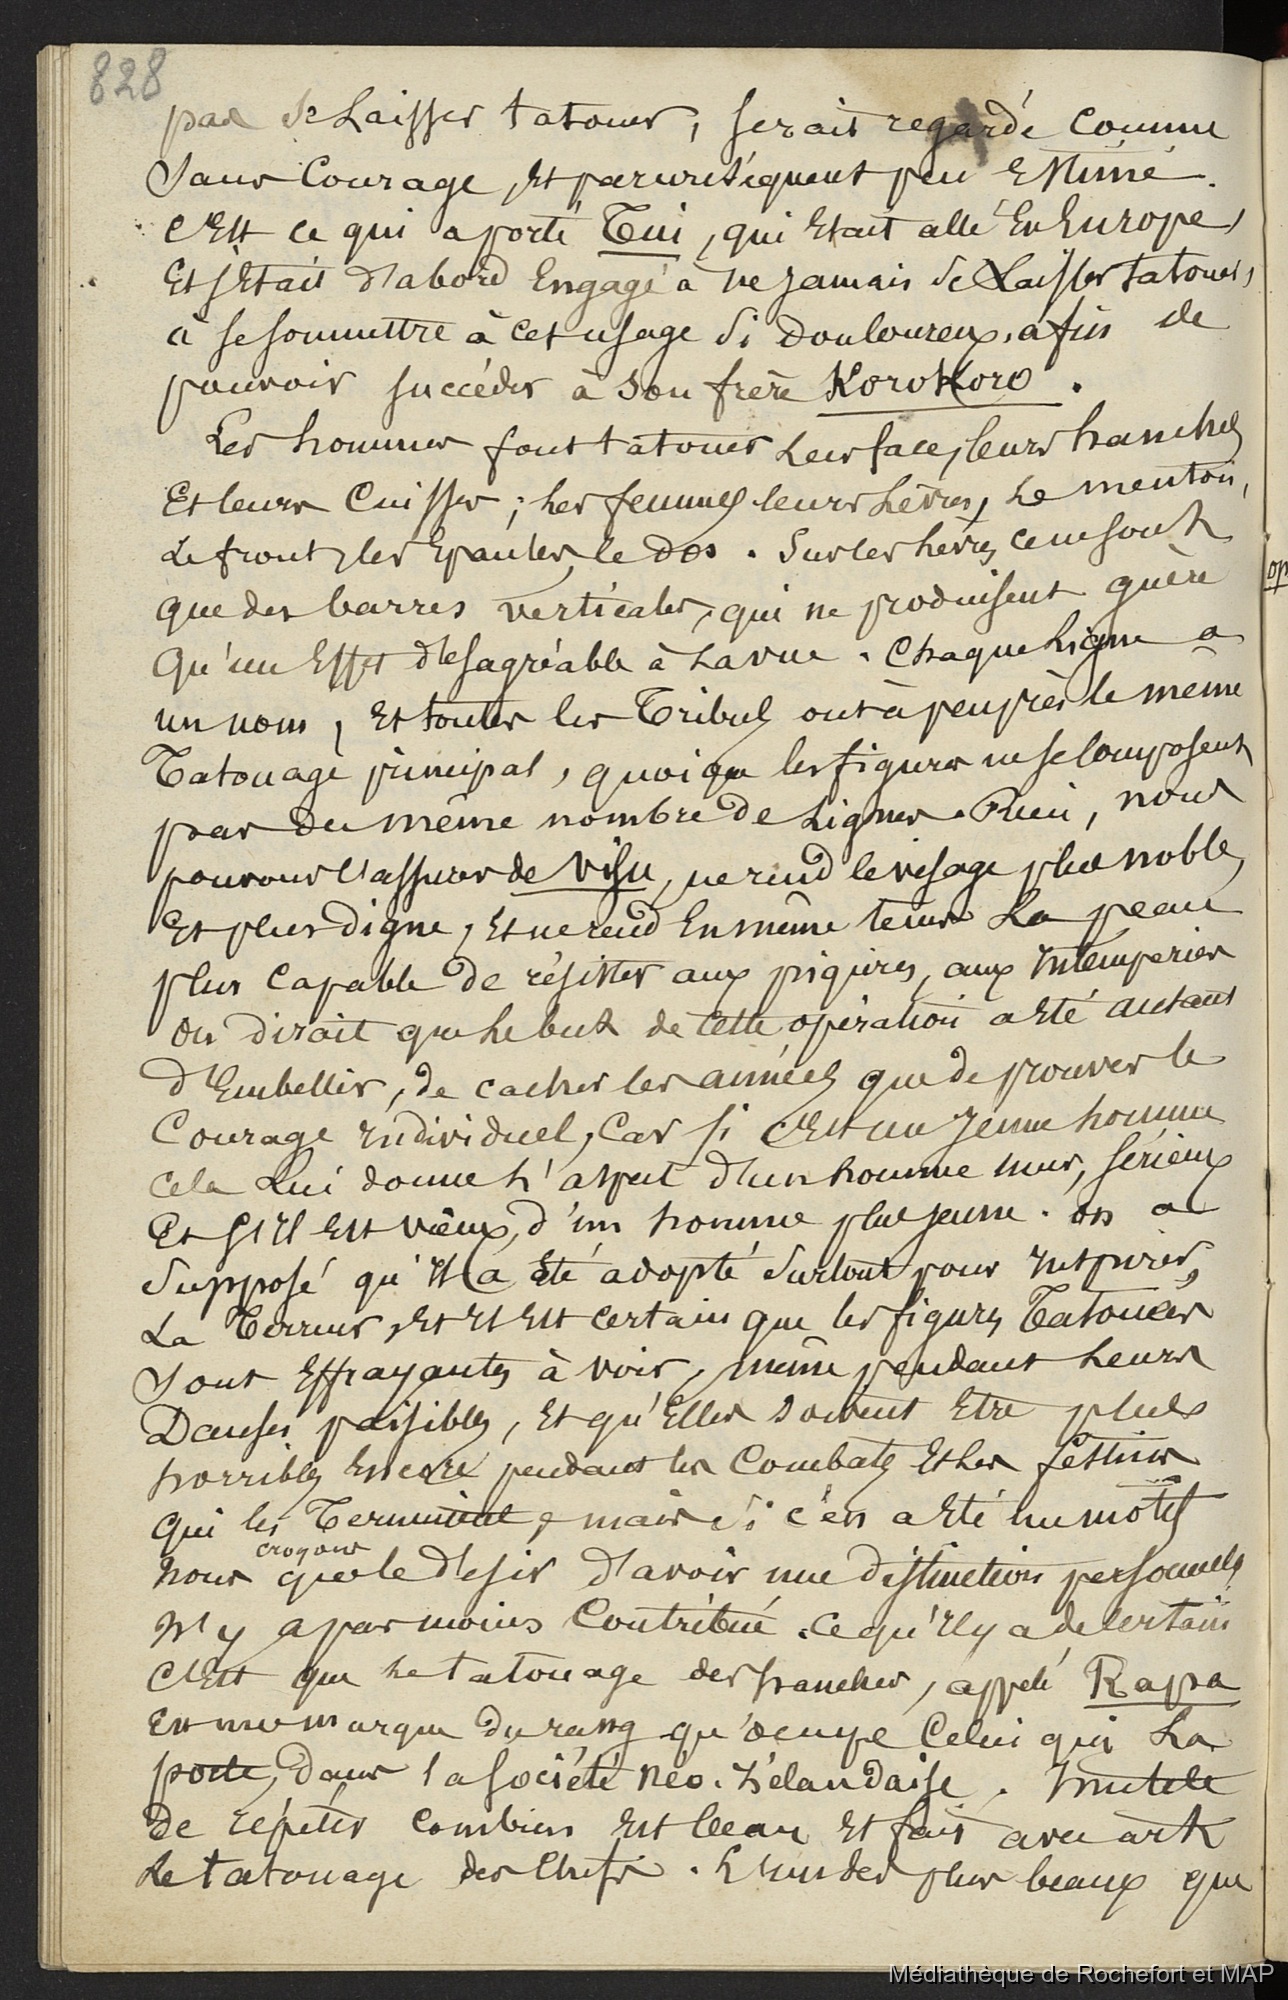 828
pas se Laisser tatouer, serait regardé comme
sans Courage, et par conséquent peu Estimé.
c'Est ce qui a porté Tui, qui Etait allé En Europe,
Et s'Etait d'abord Engagé à ne jamais se Laisser tatouer,
à se soumettre à cet usage si douloureux, afin de
pouvoir succéder à son frère KoroKoro.
Les hommes font tatouer Leur face, leurs hanches
Et leurs Cuisses ; Les femmes leurs Lèvres, Le menton,
Le front, les Epaules, le dos. Sur les Lèvres ce ne sont
que des barres verticales, qui ne produisent guère
Qu'un Effet désagréable à La vue. Chaque Ligne a
un nom, Et toutes les Tribus ont à peu près le même
Tatouage principal, quoique les figures ne se Composent
pas du même nombre de Lignes. Rien, nous
pouvons l'assurer de visu, ne rend le visage plus noble,
Et plus digne, Et ne rend En même tems La peau
plus Capable de résister aux piqûres, aux Intemperies
On dirait que Le but de cette opération a Eté autant
d'Embellir, de cacher les années que de prouver le
Courage Individuel, Car si c'Est un Jeune homme
cela Lui donne L'aspect d'un homme mur, sérieux
Et s'Il Est vieux, d'un homme plus jeune. on a
supposé qu'Il a Eté adopté surtout pour Inspirer
La Terreur, Et Il Est certain que les figures Tatouées
sont Effrayantes à voir, même pendant Leurs
Danses paisibles, Et qu'Elles doivent Etre plus
horribles Encore pendant les Combats Et Les festins
qui les Terminent, mais si c'en a Eté un motif
croyons
Nous que le désir d'avoir une distinction personnelle
N'y a pas moins Contribué. Ce qu'Il y a de Certain
c'Est que Le tatouage des hanches, appelé Rapa
Est une marque du rang qu'occupe Celui qui La
porte, dans la société néo-Zélandaise. Inutile
de répéter combien Est beau Et fait avec art
Le tatouage des Chefs. L'un des plus beaux que
op
Médiathèque de Rochefort et MAP